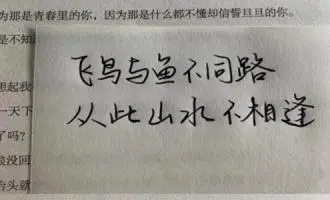 为那是青春里的你，因为那是什么都不懂却信誓旦旦的你。
是不知
飞鸟与鱼不同路
从此山水不相逢
想起我
一天下
了吗？
没回
抬头就